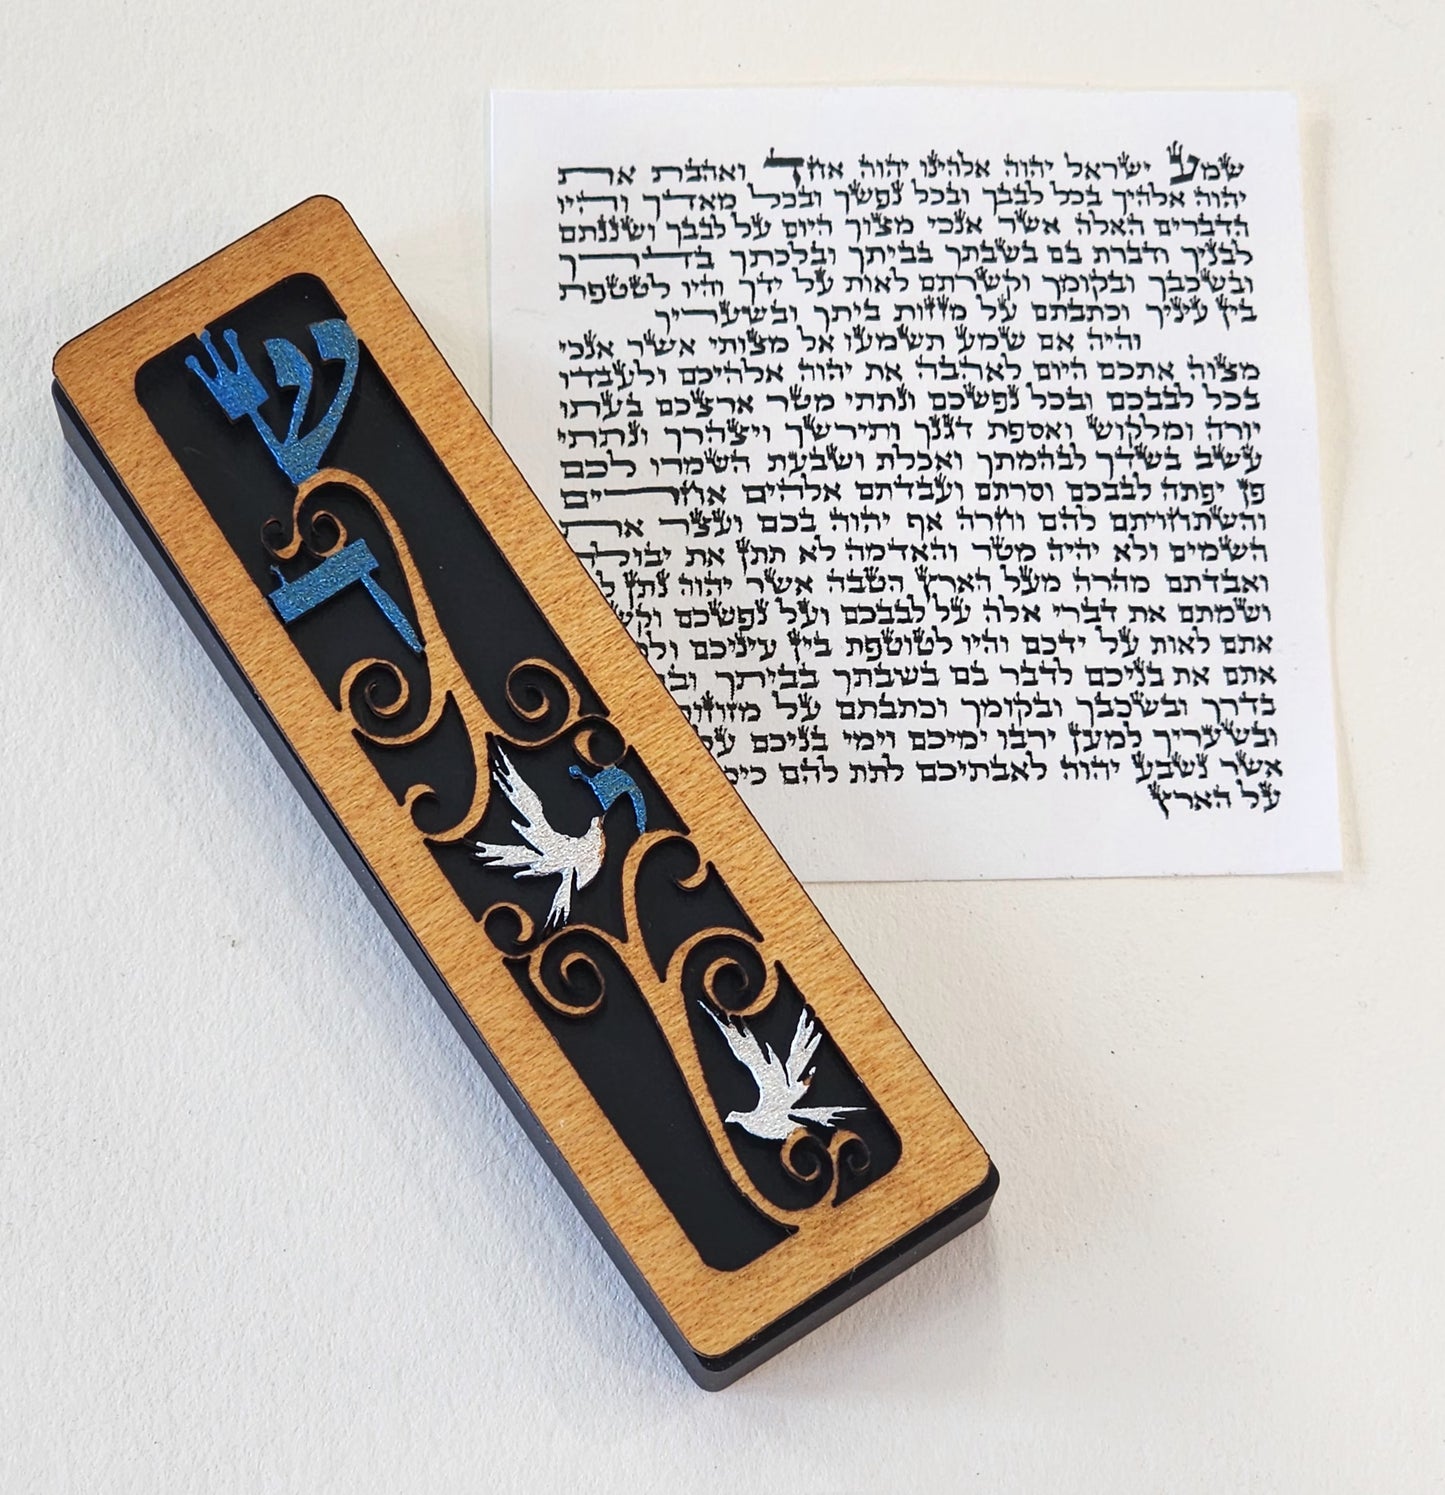 שמע ישראל יהוה אלהינו יהוה אחד ואהבת את
יהוה אלהיך בכל לבבך ובכל נפשך ובכל מאדך והיו
הדברים האלה אשר אנכי מצוך היום על לבבך ושננתם
לבניך ודברת בם בשבתך בביתך ובלכתך בדרך
ובשכבך ובקומך וקשרתם לאות על ידך והיו לטטפת
בין עיניך וכתבתם על מזוזות ביתך ובשעריך
והיה אם שמע תשמעו אל מצותי אשר אנכי
מצוה אתכם היום לאהבה את יהוה אלהיכם ולעבדו
בכל לבבכם ובכל נפשכם ונתתי מטר ארצכם בעתו
יורה ומלקוש ואספת דגנך ותירשך ויצהרך ונתתי
עשב בשדך לבהמתך ואכלת ושבעת השמרו לכם
פן יפתה לבבכם וסרתם ועבדתם אלהים אחרים
והשתחויתם להם וחרה אף יהוה בכם ועצר את
השמים ולא יהיה מטר והאדמה לא תתן את יבולה
ואבדתם מהרה מעל הארץ הטבה אשר יהוה נתן
ושמתם את דברי אלה על לבבכם ועל נפשכם
אתם לאות על ידכם והיו לטוטפת בין עיניכם
אתם את בניכם לדבר בם בשבתך בביתך
בדרך ובשכבך ובקומך וכתבתם על מזוזות
ובשעריך למען ירבו ימיכם וימי בניכם על
אשר נשבע יהוה לאבתיכם לתת להם
על הארץ
ש
ד
י